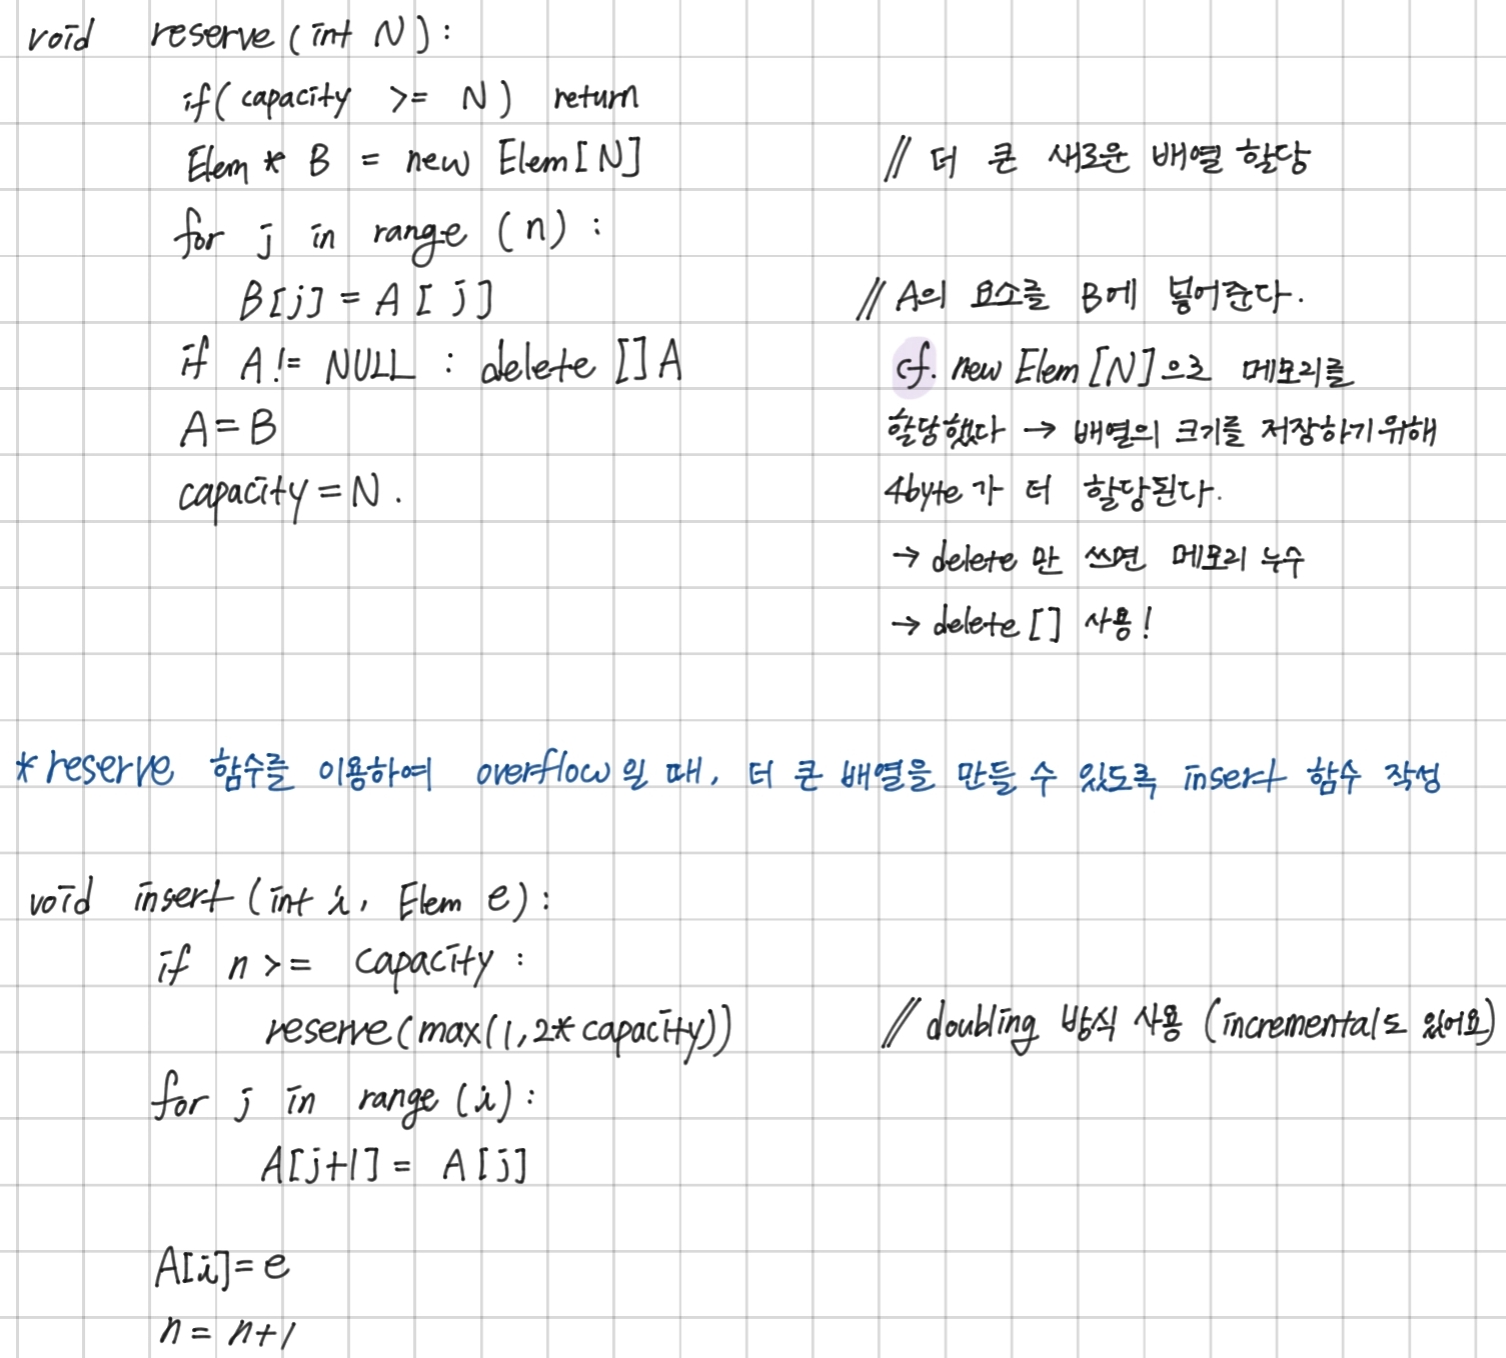 void reserve (int N) :
if( capacity >= N ) return
Elem * B = new Elem [N] // 더 큰 새로운 배열 할당
for j in range (n) :
B[j] = A [ j ] // A의 요소를 B에 넣어준다.
if A != NULL : delete [] A cf. new Elem [N]으로 메모리를
A = B 할당했다 → 배열의 크기를 저장하기 위해
capacity = N . 4byte 가 더 할당된다.
→ delete 만 쓰면 메모리 누수
→ delete [ ] 사용 !
* reserve 함수를 이용하여 overflow 일 때, 더 큰 배열을 만들 수 있도록 insert 함수 작성
void insert (int i, Elem e) :
if n >= capacity :
reserve (max(1, 2* capacity)) // doubling 방식 사용 (incremental도 있어요)
for j in range (i) :
A[j+1] = A [j]
A[i] = e
n = n+1